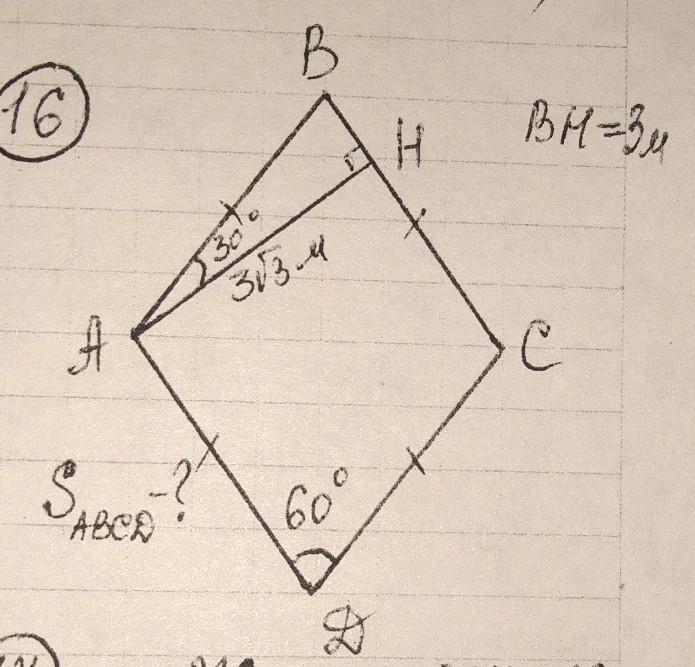 16
B
H
BH=3м
30°
3√3 м
A
C
S ABCD -?
60°
D